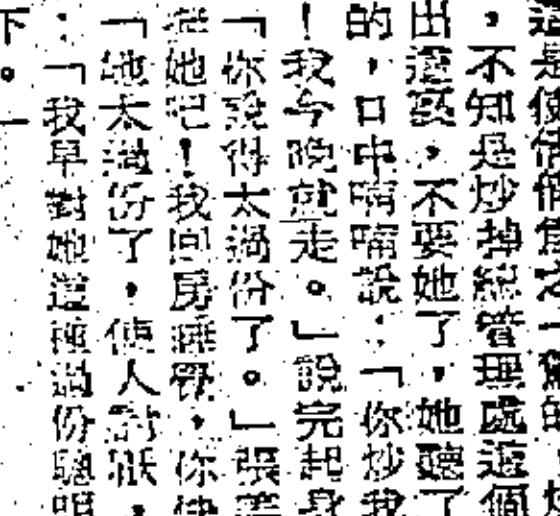 這是使
，不知是炒掉總管理處這個
出這裏，不要她了，她聽了
的，口中喃喃說：「你炒我
！我今晚就走。」說完起身
「你說得太過份了。」張
她吧！我回房睡覺，你
「她太過份了，使人討厭，
：「我早對她這種過份聰明
下。」